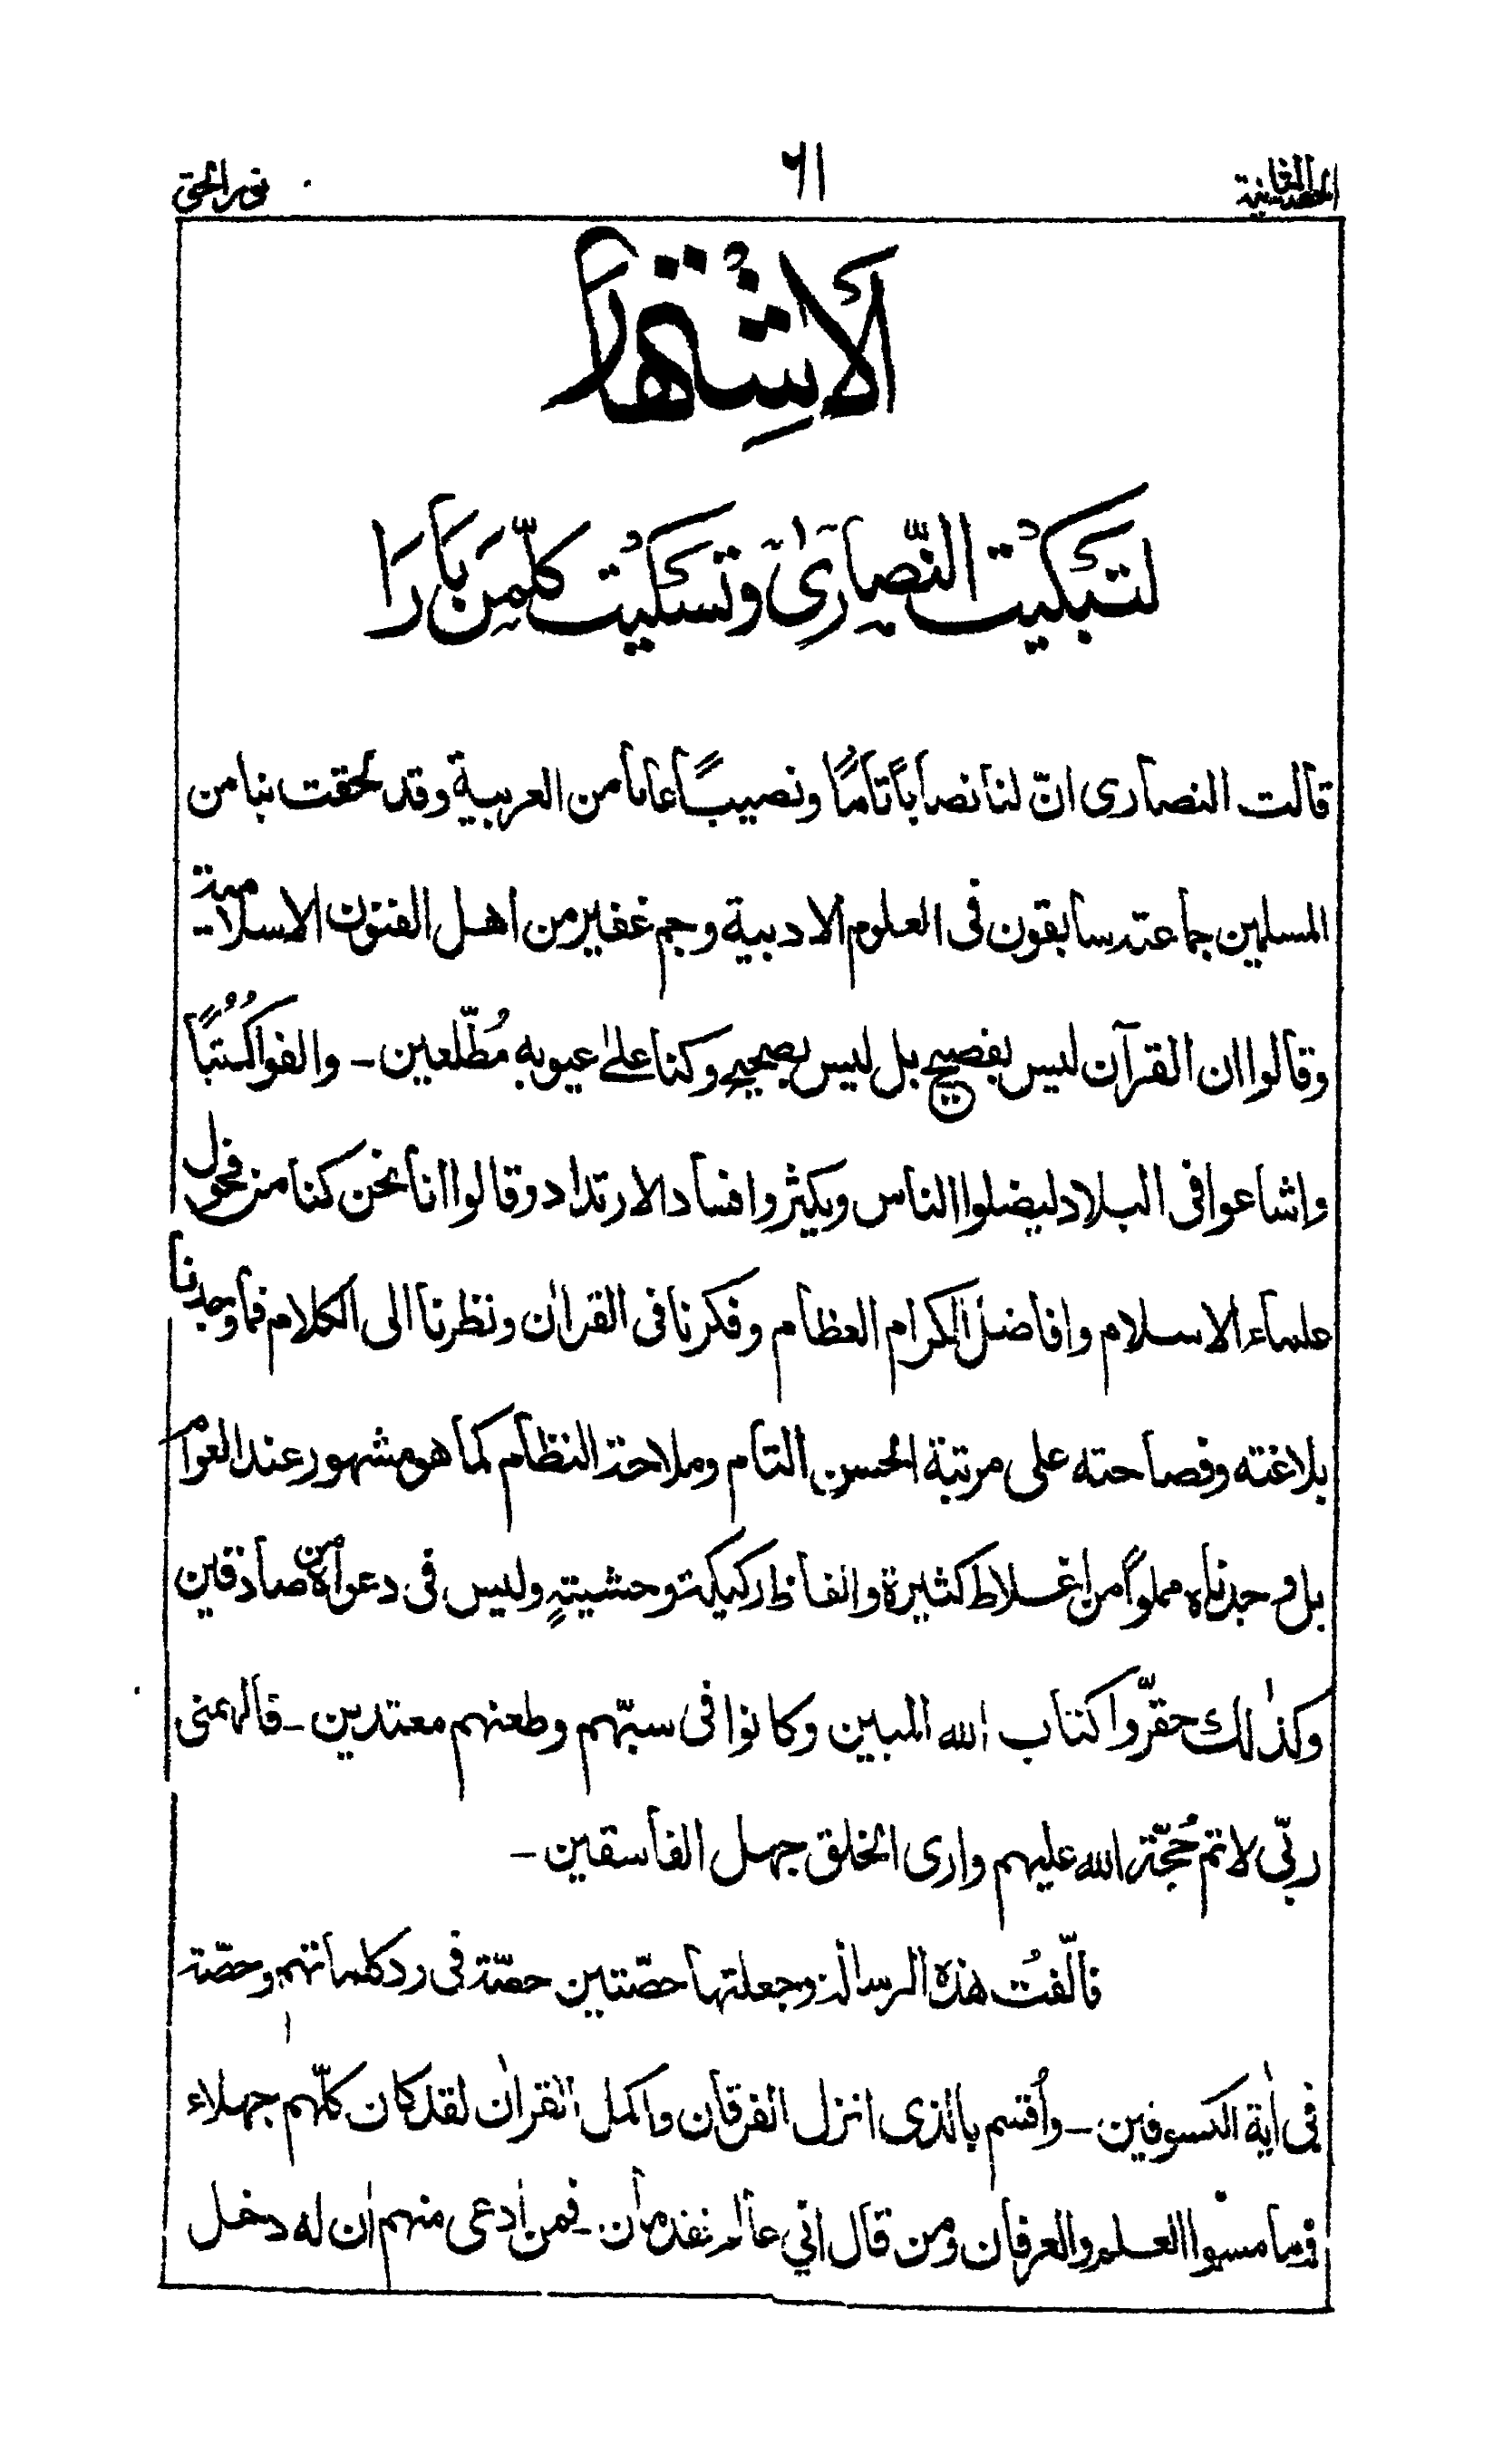 الحصة الثانية ٦١ نور الحق
الاشتهار
لتبكيت النّصارىٰ وتسكيت كلّ من بارا
قالت النصارى انّ لنا نصاباً تامًّا ونصيبًا عاما من العربية وقد لحقت بنا من
المسلمين جماعة سابقون فى العلوم الادبية وجم غفير من اهل الفنون الاسلامية
وقالوا ان القرآن ليس بفصيح بل ليس بصحيح وكنا علىٰ عيوبه مُطّلعين - والفوا كُتُبًا
واشاعوا فى البلاد ليضلوا الناس ويكثروا فساد الارتداد وقالوا انا نحن كنا من فحول
علماء الاسلام وافاضل الكرام العظام وفكرنا فى القراٰن ونظرنا الى الكلام فما وجدنا
بلاغته وفصاحته على مرتبة الحسن التام وملاحة النظام كما هو مشهور عند العوام
بل وجدناه مملوًا من اغلاط كثيرة والفاظ ركيكة وحشيةٍ وليس فى دعواه من صادقين
وكذٰلك حقّروا كتاب الله المبين وكانوا فى سبّهم وطعنهم معتدين - فالهمنى
ربّى لاتم حُجّة الله عليهم وارى الخلق جهل الفاسقين -
فالّفتُ هٰذه الرسالة وجعلتها حصّتين حصّة فى رد كلماتهم وحصّة
فى اٰية الكسوفين - واُقسم بالذى انزل الفرقان واكمل القراٰن لقد كان كلّهم جهلاء
وما مسوا العلم والعرفان ومن قال انى عالم فقد مان - فمن ادعى منهم ان له دخل